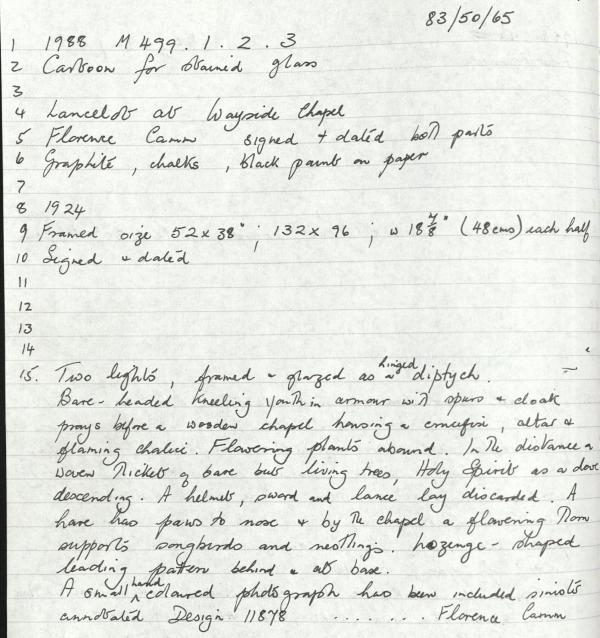 83/50/65
1 1988 M 499. 1. 2. 3
2 Cartoon for stained glass
3
4 Lancelot at Wayside Chapel
5 Florence Camm signed + dated both parts
6 Graphite, chalks, black paint on paper
7
8 1924
9 Framed size 52 x 38"; 132 x 96; w 18 7/8" (48cms) each half
10 Signed + dated
11
12
13
14
15. Two lights, framed + glazed as a hinged diptych.
Bare-headed kneeling youth in armour with spurs + cloak
prays before a wooden chapel housing a crucifix, altar +
flaming chalice. Flowering plants abound. In the distance a
woven thicket of bare but living trees, Holy Spirit as a dove
descending. A helmet, sword and lance lay discarded. A
hare has paws to nose + by the chapel a flowering thorn
supports songbirds and nestlings. Lozenge-shaped
leading pattern behind + at base.
A small hand coloured photograph has been included sinist
annotated Design 11878 ........ Florence Camm